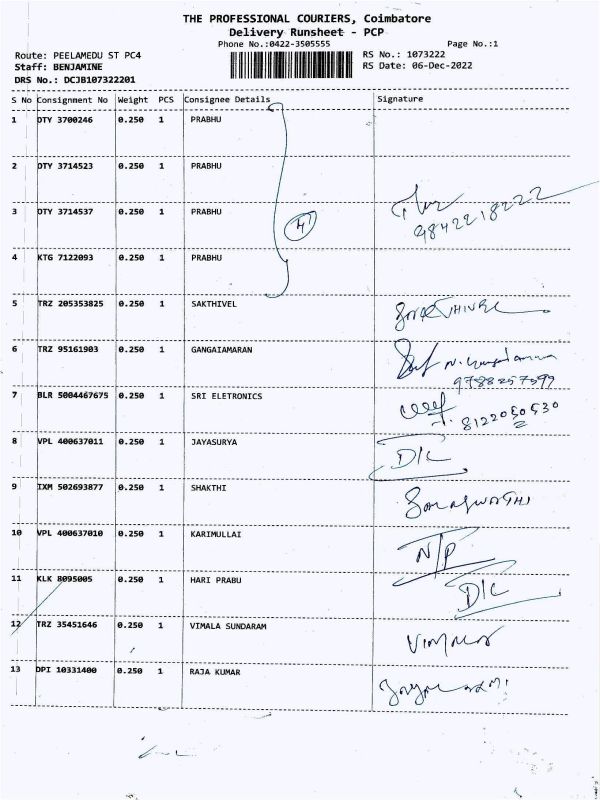 THE PROFESSIONAL COURIERS, Coimbatore
Delivery Runsheet - PCP
Phone No.:0422-3505555
Page No.:1
Route: PEELAMEDU ST PC4
RS No.: 1073222
Staff: BENJAMINE
RS Date: 06-Dec-2022
DRS No.: DCJB107322201
S No Consignment No Weight PCS Consignee Details Signature
1 DTY 3700246 0.250 1 PRABHU
2 DTY 3714523 0.250 1 PRABHU
3 DTY 3714537 0.250 1 PRABHU
4
9842218222
4 KTG 7122093 0.250 1 PRABHU
5 TRZ 205353825 0.250 1 SAKTHIVEL
6 TRZ 95161903 0.250 1 GANGAIAMARAN
9788257599
7 BLR 5004467675 0.250 1 SRI ELETRONICS
8122050530
8 VPL 400637011 0.250 1 JAYASURYA D/L
9 IXM 502693877 0.250 1 SHAKTHI
10 VPL 400637010 0.250 1 KARIMULLAI N/P
11 KLK 8095005 0.250 1 HARI PRABU D/L
12 TRZ 35451646 0.250 1 VIMALA SUNDARAM
13 DPI 10331400 0.250 1 RAJA KUMAR